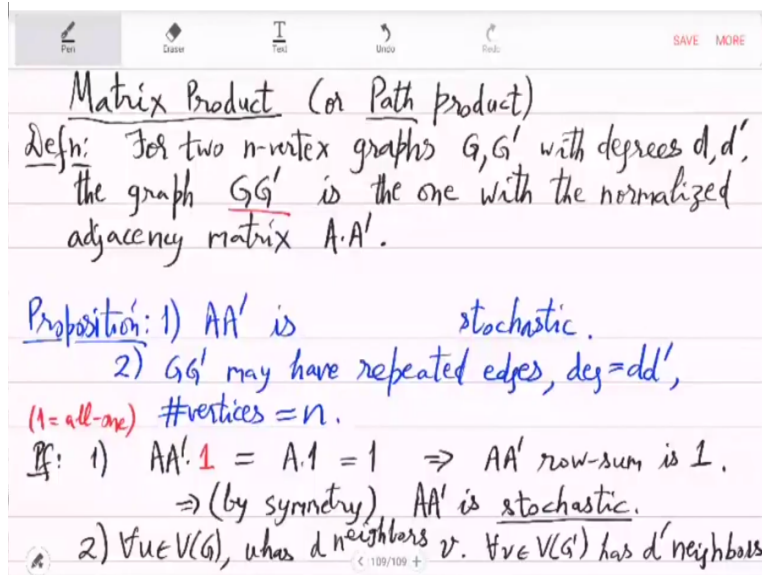 Pen Eraser Text Undo Redo SAVE MORE
Matrix Product (or Path product)
Defn: For two n-vertex graphs G,G' with degrees d,d',
the graph GG' is the one with the normalized
adjacency matrix A.A'.
Proposition: 1) AA' is stochastic.
2) GG' may have repeated edges, deg=dd',
(1=all-one) #vertices = n.
Pf: 1) AA'.1 = A.1 = 1 ⇒ AA' row-sum is 1.
⇒ (by symmetry) AA' is stochastic.
2) ∀u∈V(G), u has d neighbors v. ∀v∈V(G') has d' neighbors
< 109/109 +